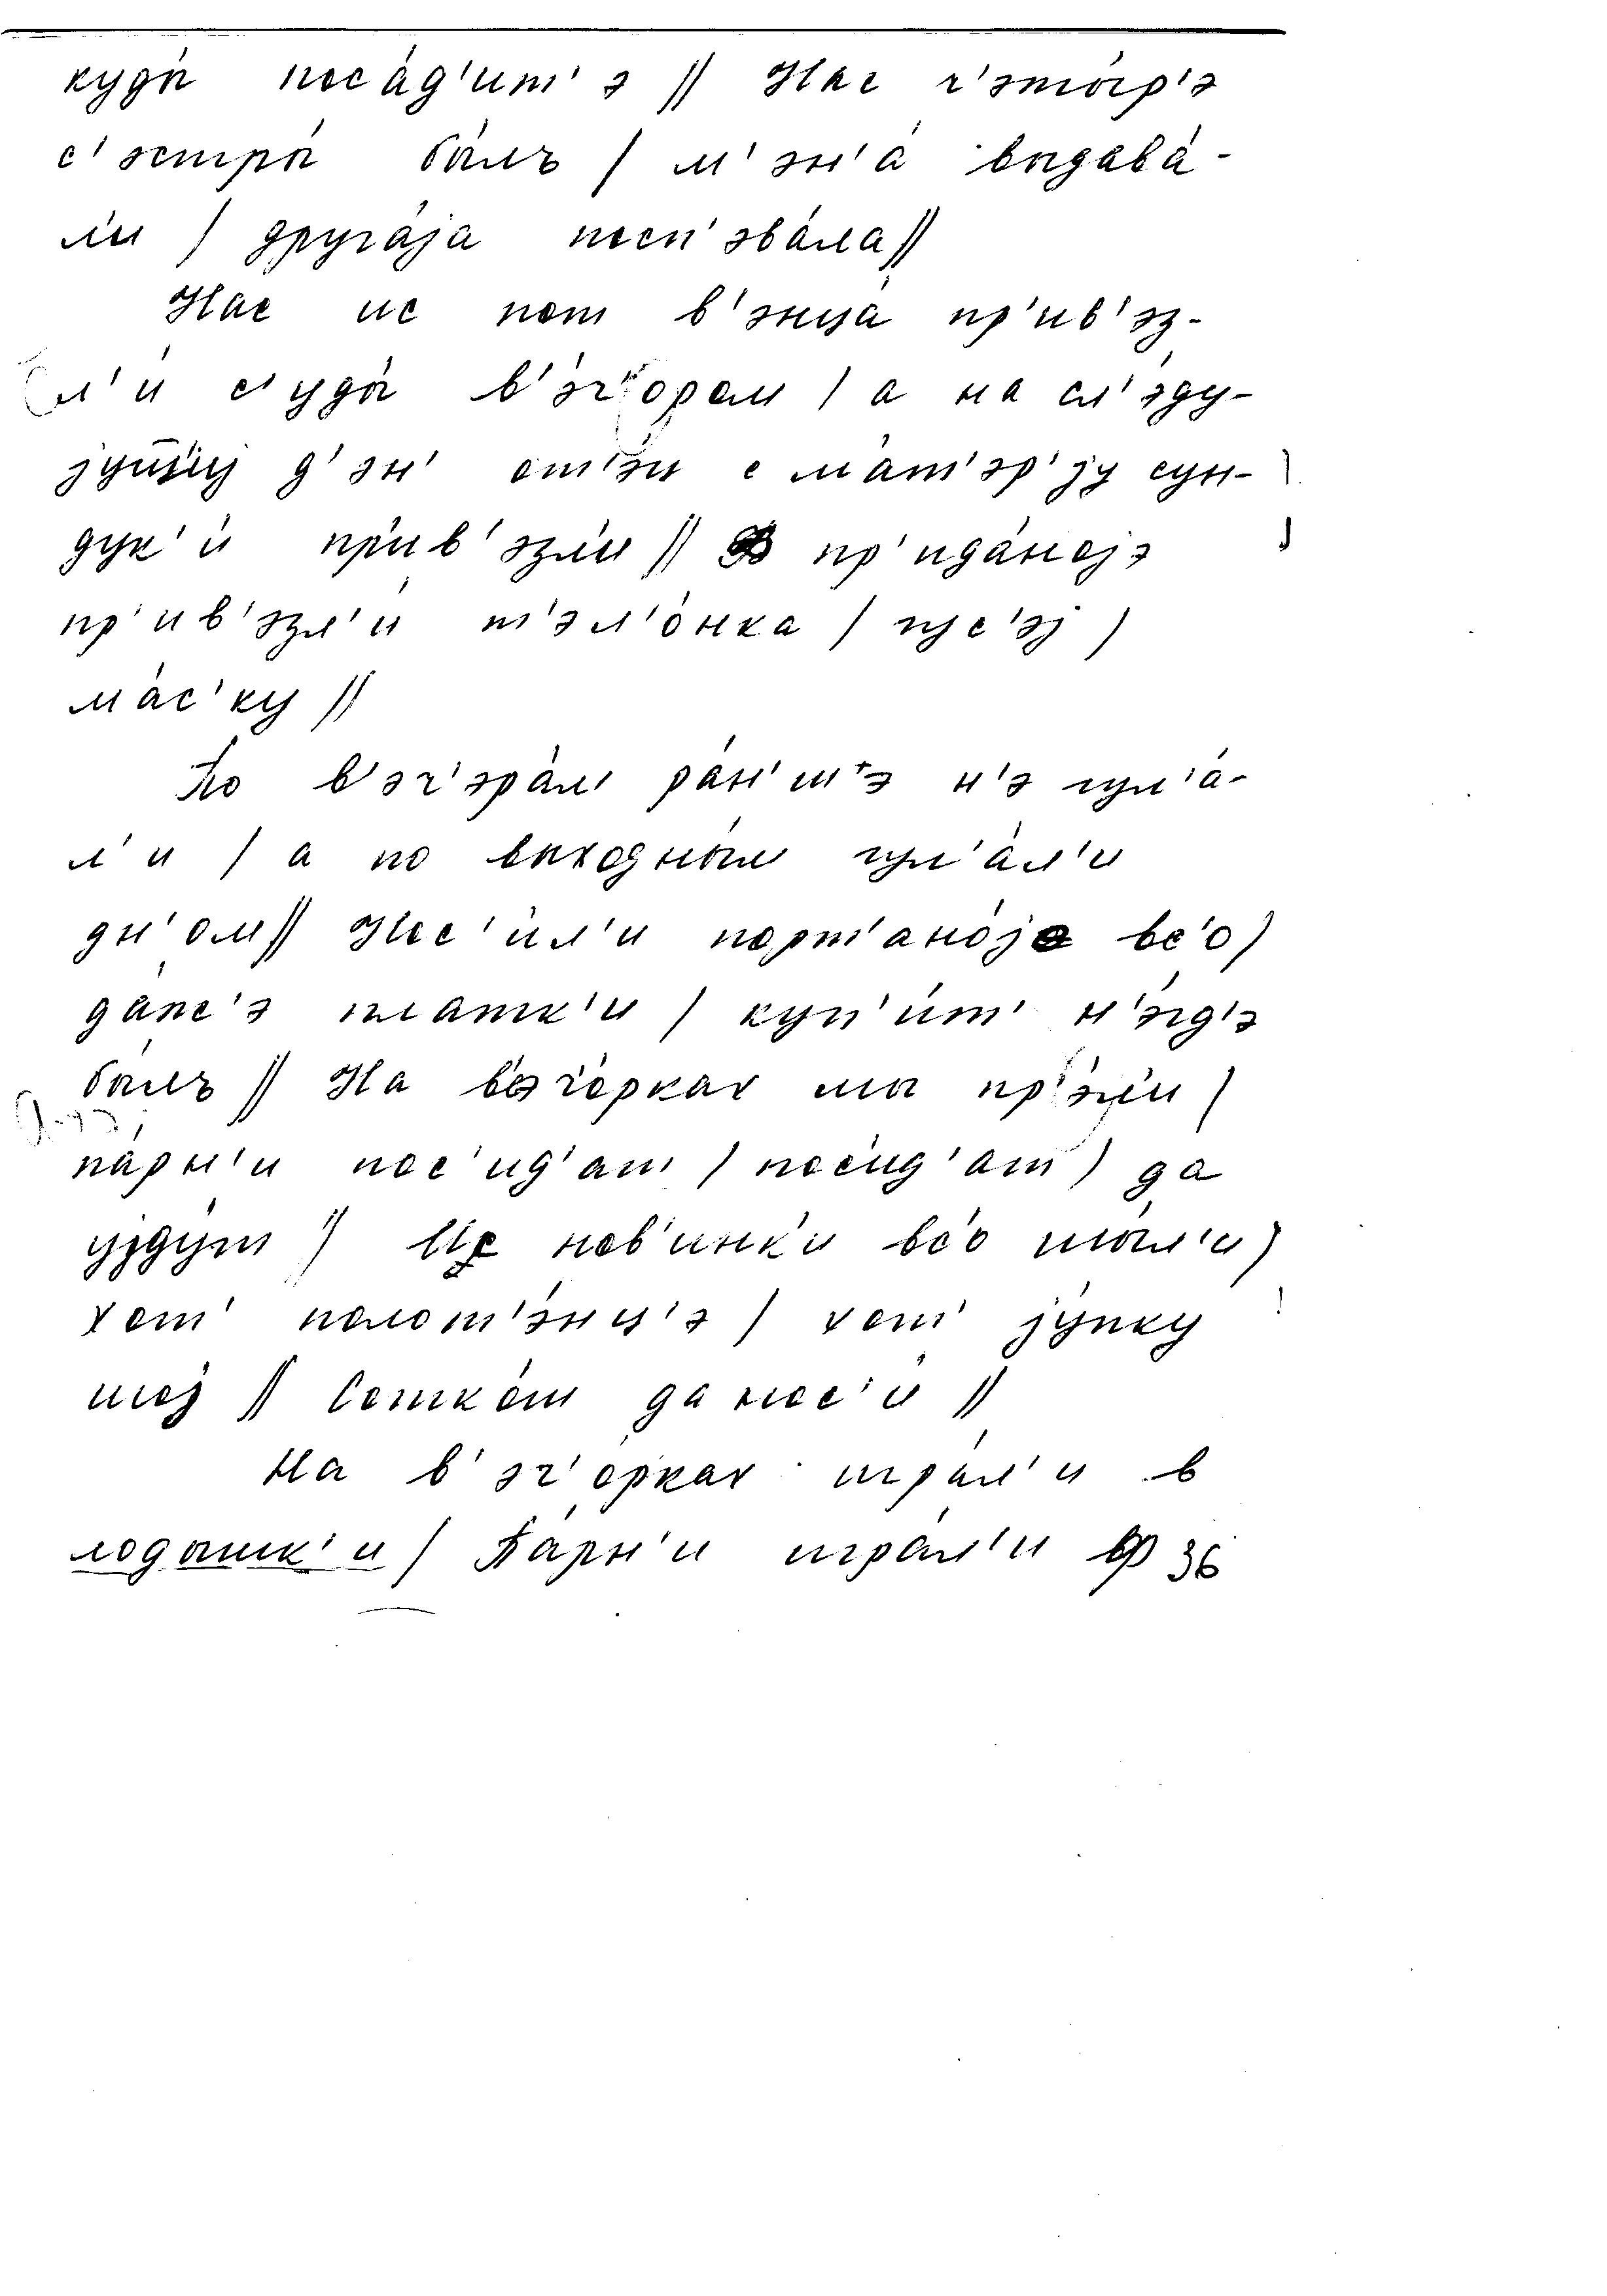 куды́ поса́д'ит'э // Нас ч'эты́р'э
с'эстры́ бы́лъ / м'эн'а́ выдава́-
ли / друга́jа посп'эва́ла //
Нас ис пот в'энца́ пр'ив'эз-
л'и́ с'уды́ в'э́ч'ором / а на сл'э́ду-
jушч'иj д'эн' от'э́ц с ма́т'эр'jу сун-
дук'и́ при́в'эзли́ // пр'ида́ноjэ
пр'ив'эзл'и́ т'эл'о́нка / гус'э́j /
ма́с'ку //
По в'эч'эра́м ра́н'ш'э н'э гул'а́-
л'и / а по выходны́м гул'а́л'и
дн'ом // Нос'и́л'и порт'ано́jо вс'о /
да́пс'э платк'и / куп'и́т' н'э́гд'э
бы́лъ // На в'эч'о́рках мы пр'а́ли /
па́рн'и пос'ид'ат / пос'ид'ат / да
уjду́т // Их нов'инк'и вс'о шы́л'и /
хот' полот'э́нц'э / хот' jу́пку
шоj // Сотко́ш да нос'и́ //
На в'эч'о́рках игра́л'и в
лоды́шк'и / Па́рн'и игра́л'и в 36